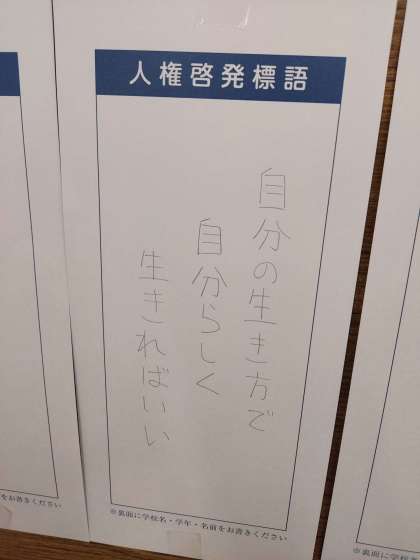 人権啓発標語
自分の生き方で
自分らしく
生きればいい
※裏面に学校名・学年・名前をお書きください
をお書きください